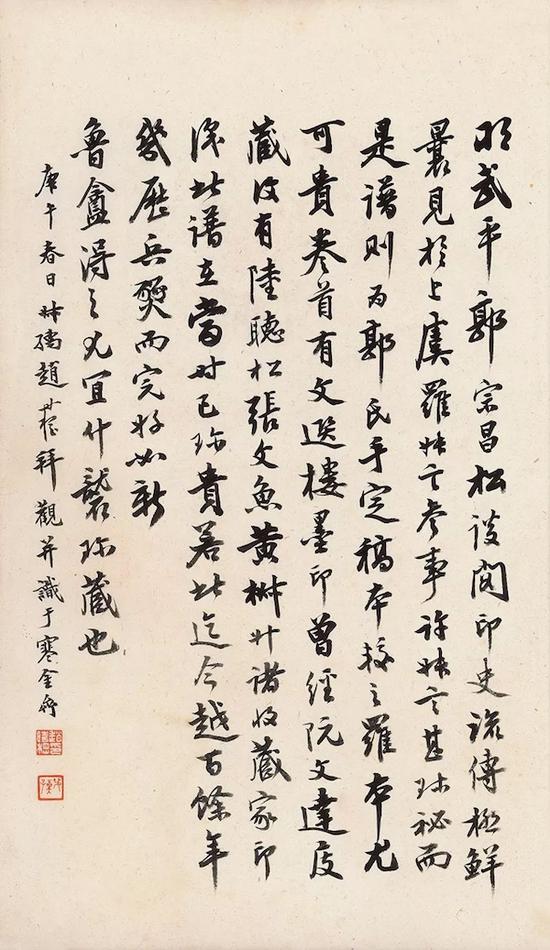 明武平郭宗昌松談閣印史流傳極鮮
曩見於上虞羅叔言參事許叔言甚珍秘而
是譜則為郭氏手定稿本較之羅本尤
可貴卷首有文選樓墨印曾經阮文達庋
藏後有陸聽松張文魚黃椒升諸收藏家印
此譜在當時已珍貴若此迄今越百餘年
幾歷兵燹而完好如新
魯盦得之尤宜什襲珍藏也
庚午春日叔孺趙時棡拜觀并識于寒金齋